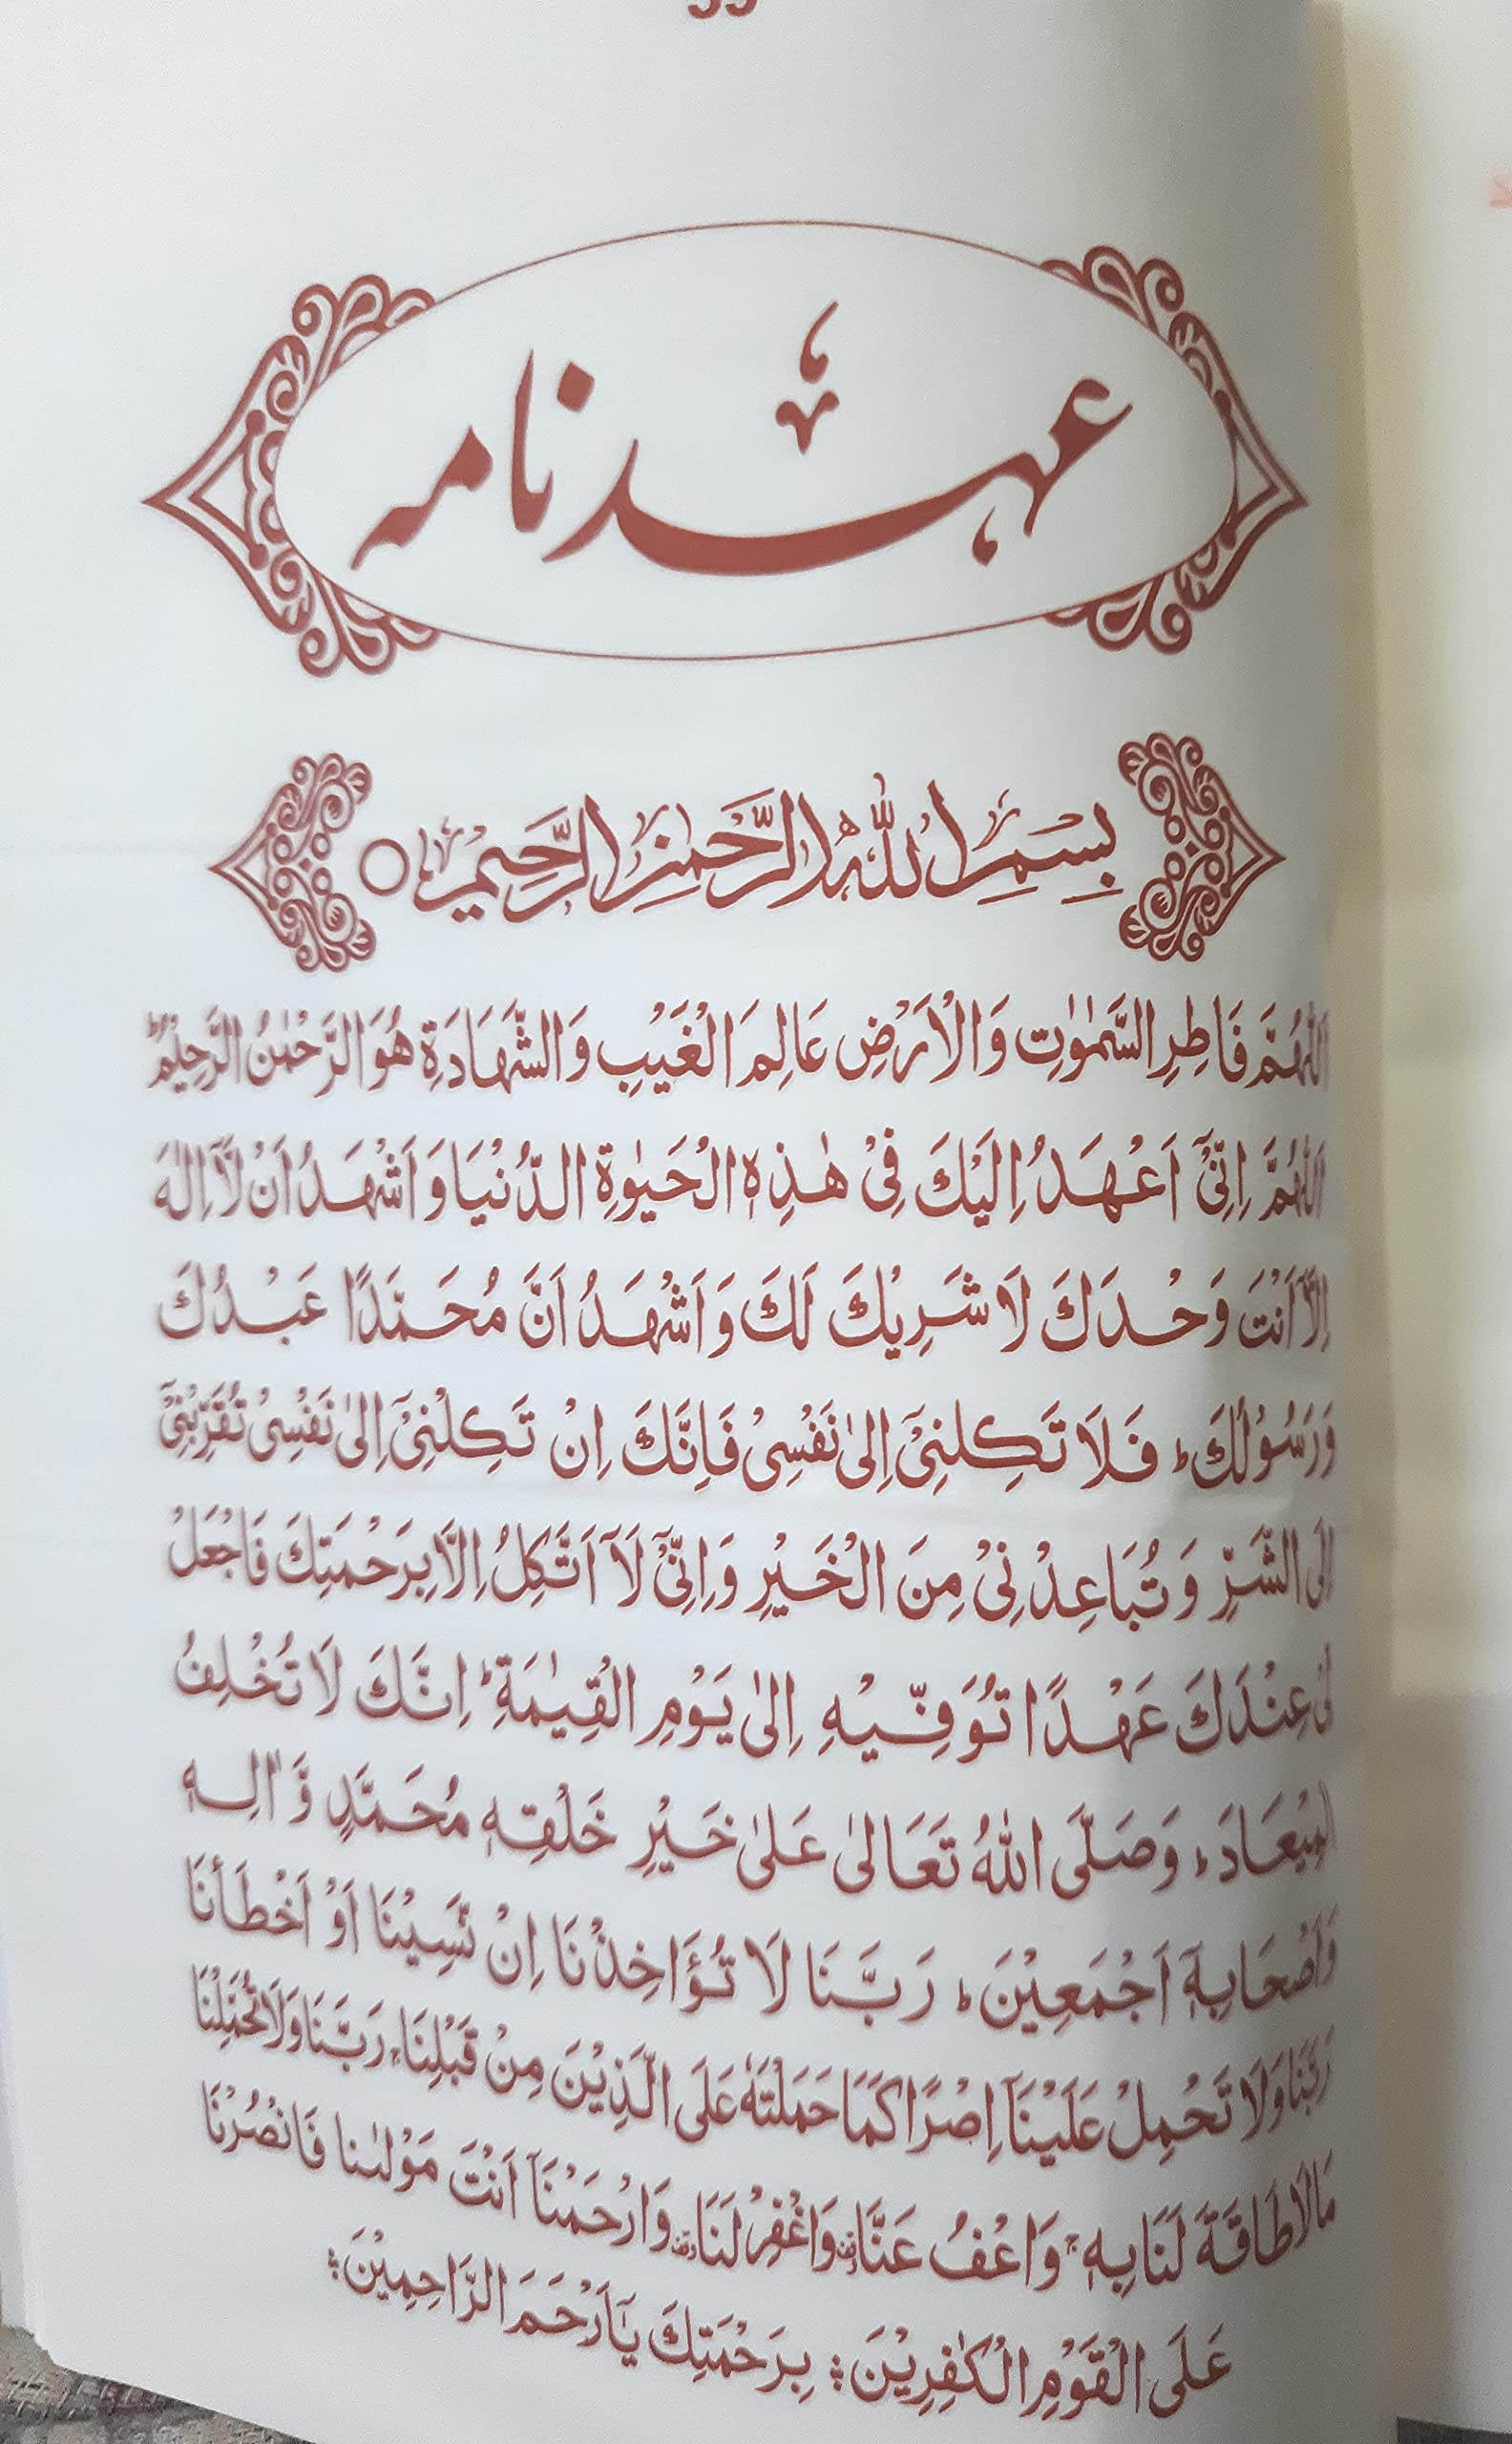 عہد نامہ
بِسْمِ اللّٰهِ الرَّحْمٰنِ الرَّحِیْمِ ○
اَللّٰهُمَّ فَاطِرِ السَّمٰوٰتِ وَالْاَرْضِ عَالِمَ الْغَیْبِ وَالشَّهَادَةِ هُوَ الرَّحْمٰنُ الرَّحِیْمُ ؕ
اَللّٰهُمَّ اِنِّیْٓ اَعْهَدُ اِلَیْكَ فِیْ هٰذِهِ الْحَیٰوةِ الدُّنْیَا وَ اَشْهَدُ اَنْ لَّاۤ اِلٰهَ
اِلَّاۤ اَنْتَ وَحْدَكَ لَا شَرِیْكَ لَكَ وَ اَشْهَدُ اَنَّ مُحَمَّدًا عَبْدُكَ
وَرَسُوْلُكَ ؕ فَلَا تَكِلْنِیْٓ اِلٰی نَفْسِیْ فَاِنَّكَ اِنْ تَكِلْنِیْٓ اِلٰی نَفْسِیْ تُقَرِّبْنِیْٓ
اِلَی الشَّرِّ وَ تُبَاعِدْنِیْ مِنَ الْخَیْرِ وَ اِنِّیْ لَاۤ اَتَّكِلُ اِلَّا بِرَحْمَتِكَ فَاجْعَلْ
لِیْ عِنْدَكَ عَهْدًا تُوَفِّیْهِ اِلٰی یَوْمِ الْقِیٰمَةِ ؕ اِنَّكَ لَا تُخْلِفُ
الْمِیْعَادَ ؕ وَصَلَّی اللّٰهُ تَعَالٰی عَلٰی خَیْرِ خَلْقِهٖ مُحَمَّدٍ وَّ اٰلِهٖ
وَاَصْحَابِهٖٓ اَجْمَعِیْنَ ؕ رَبَّنَا لَا تُؤَاخِذْنَا اِنْ نَّسِیْنَا اَوْ اَخْطَاْنَا
رَبَّنَا وَلَا تَحْمِلْ عَلَیْنَاۤ اِصْرًا كَمَا حَمَلْتَهٗ عَلَی الَّذِیْنَ مِنْ قَبْلِنَا رَبَّنَا وَلَا تُحَمِّلْنَا
مَا لَا طَاقَةَ لَنَا بِهٖ ۚ وَاعْفُ عَنَّا وَاغْفِرْ لَنَا وَارْحَمْنَاۤ اَنْتَ مَوْلٰىنَا فَانْصُرْنَا
عَلَی الْقَوْمِ الْكٰفِرِیْنَ ؛ بِرَحْمَتِكَ یَاۤ اَرْحَمَ الرَّاحِمِیْنَ ؛